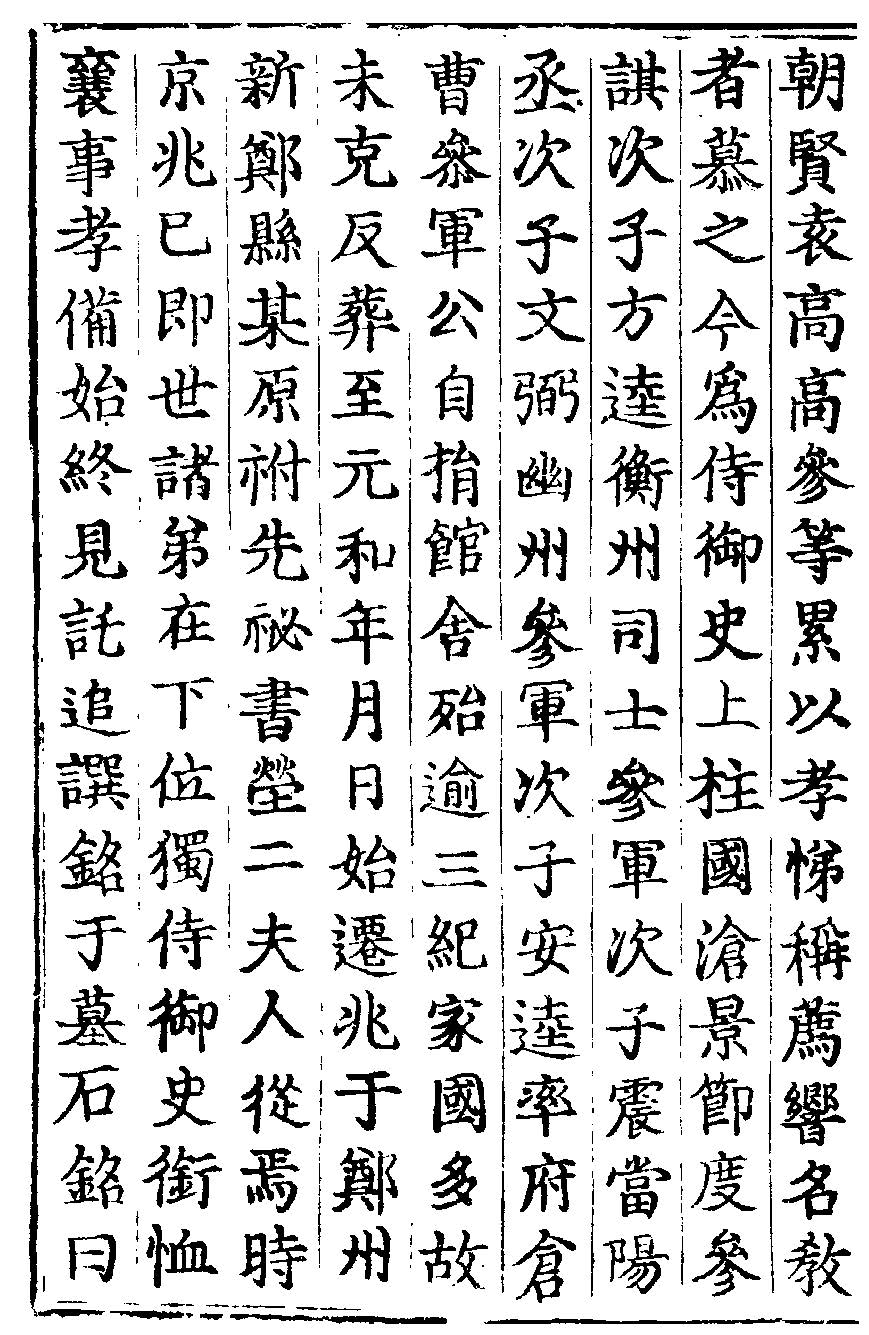 朝賢袁高高參等累以孝悌稱薦響名教
者慕之今爲侍御史上柱國滄景節度參
諆次子方逵衡州司士參軍次子震當陽
丞次子文弼幽州參軍次子安逵率府倉
曹參軍公自捐館舍殆逾三紀家國多故
未克反葬至元和年月日始遷兆于鄭州
新鄭縣某原祔先祕書塋二夫人從焉時
京兆已即世諸弟在下位獨侍御史銜恤
襄事孝備始終見託追譔銘于墓石銘曰